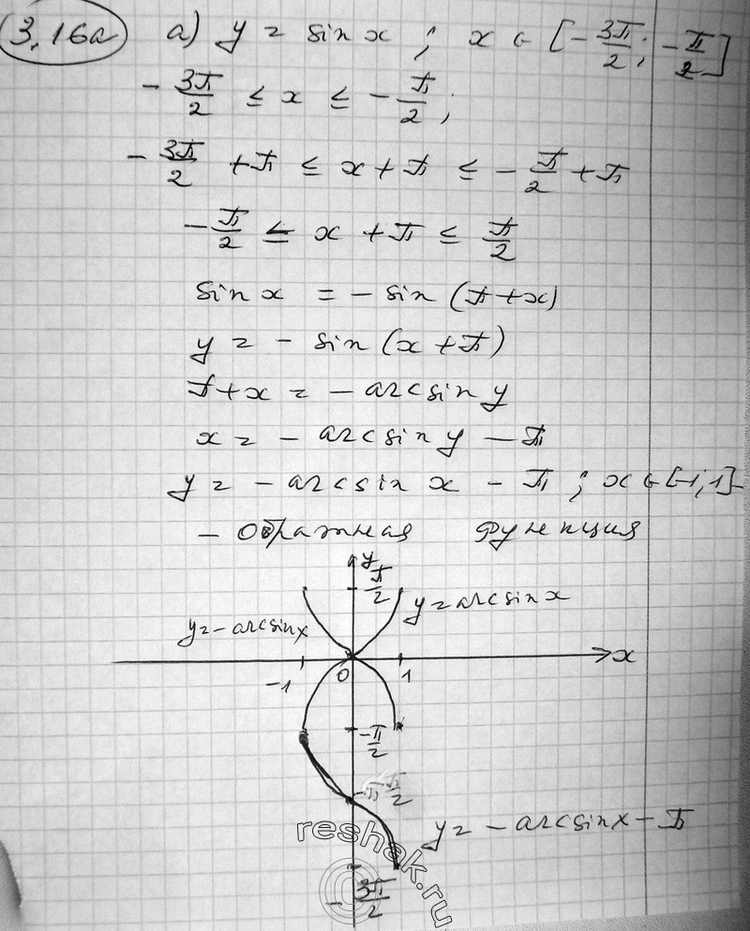 3.16a а) y = sin x ; x ∈ [-3π/2; -π/2]
-3π/2 ≤ x ≤ -π/2;
-3π/2 + π ≤ x + π ≤ -π/2 + π
-π/2 ≤ x + π ≤ π/2
sin x = - sin (π + x)
y = - sin (x + π)
π + x = - arcsin y
x = - arcsin y - π
y = - arcsin x - π ; x ∈ [-1; 1] -
- обратная функция
y
π/2
y = arcsin x
y = - arcsin x
x
-1 0 1
-π/2
-π
y = - arcsin x - π
-3π/2
reshak.ru